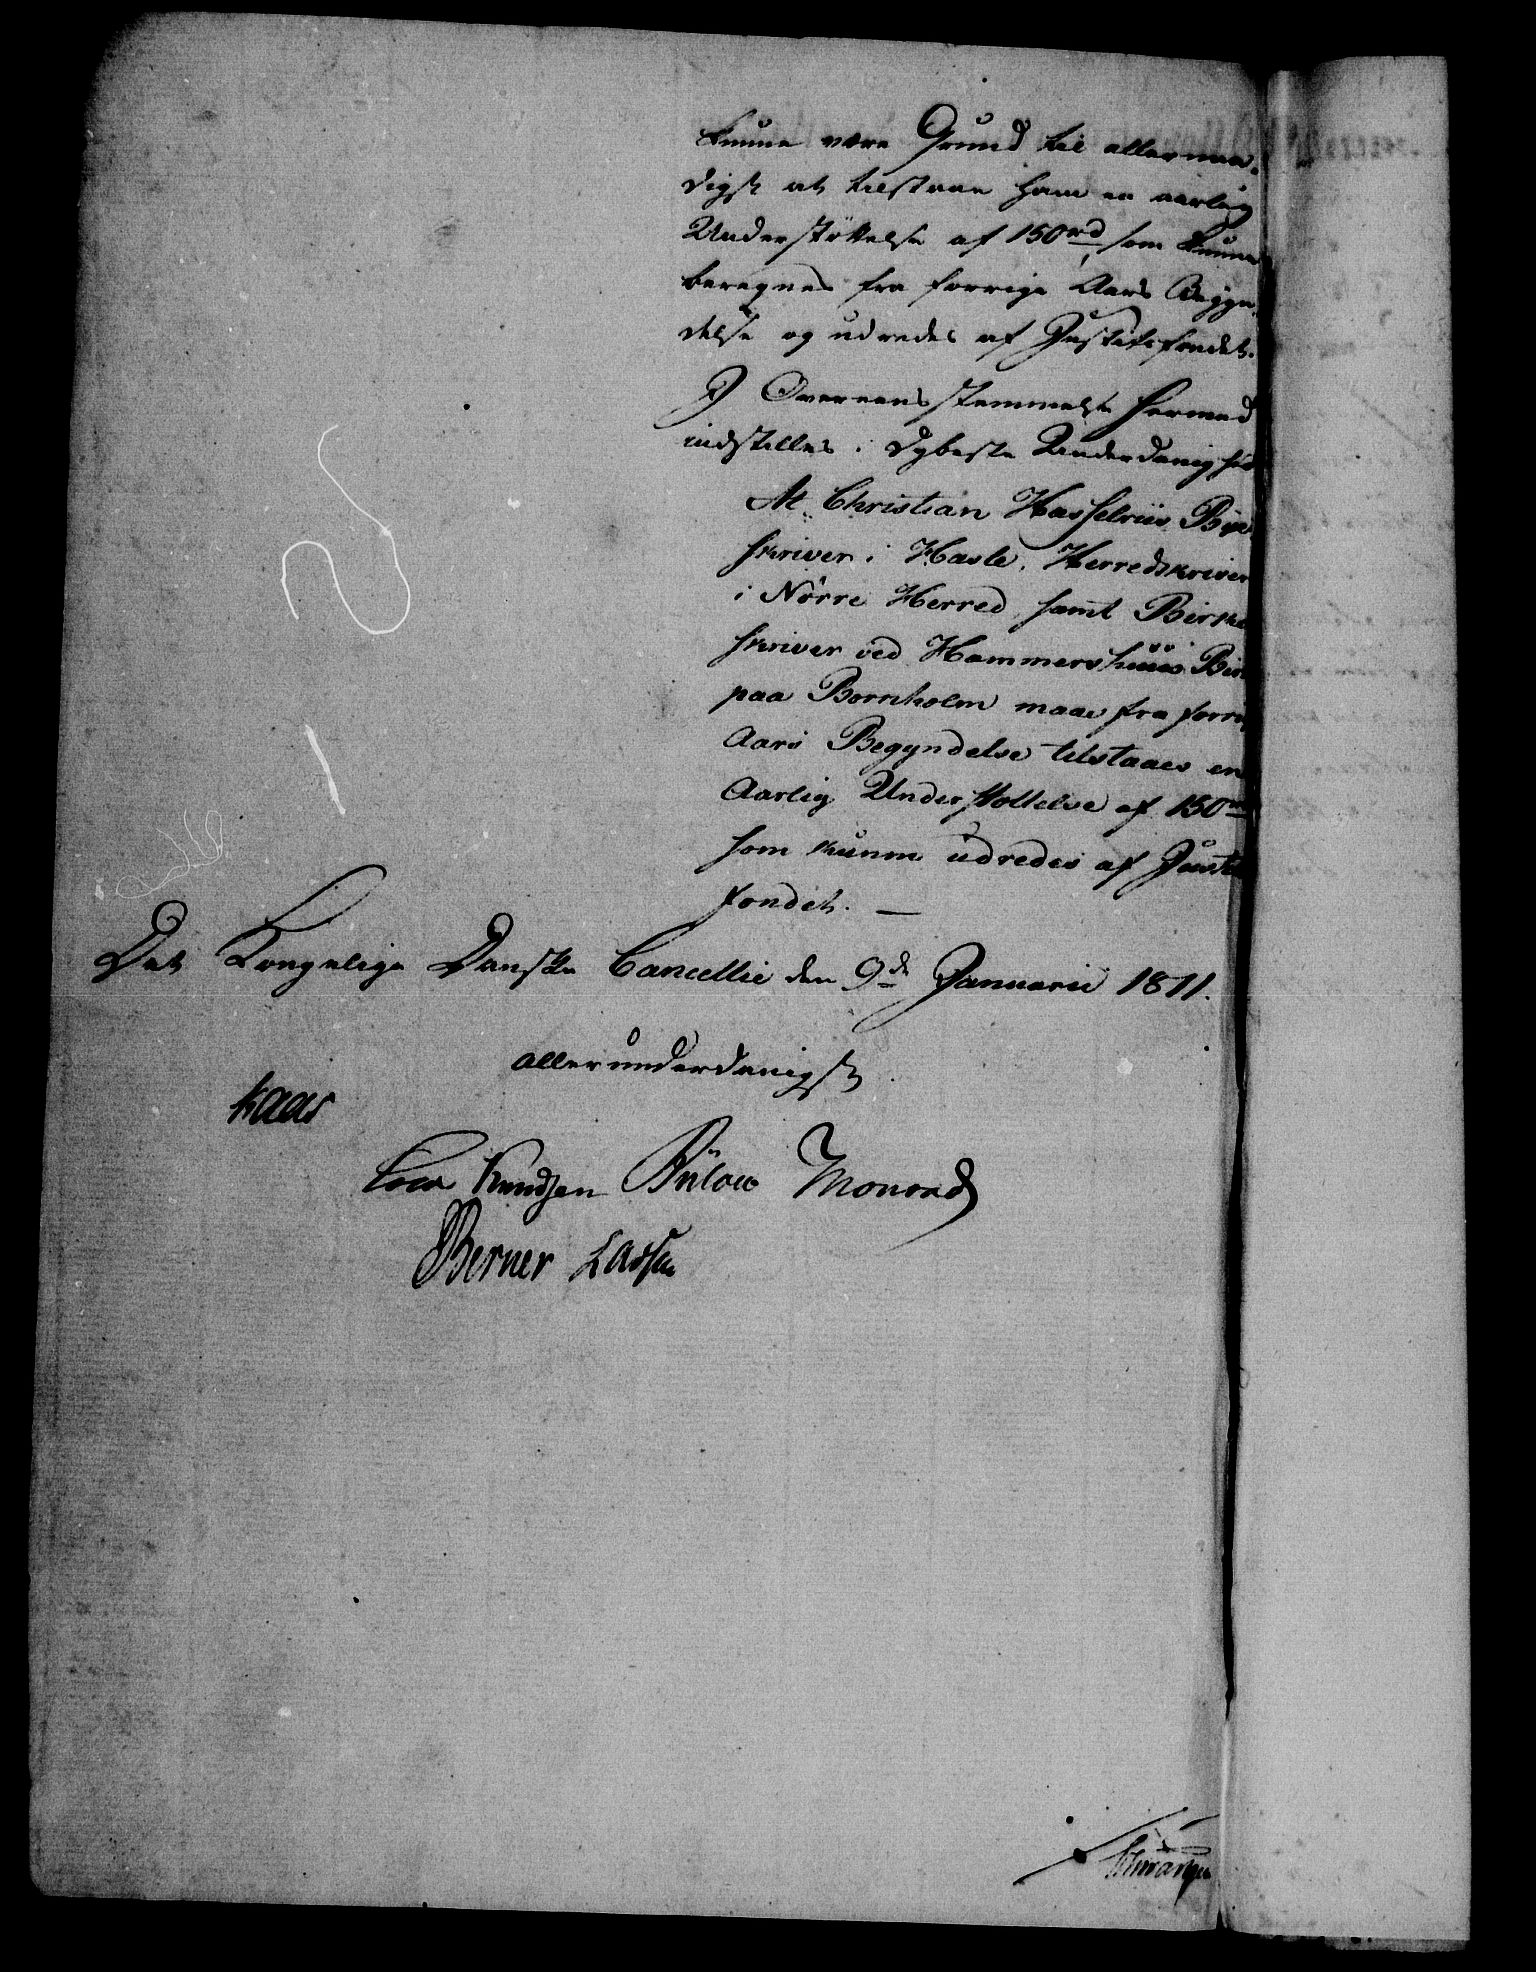 kunne være Grund til allernaa-
digst at tilstaae ham en aarlig
Understøttelse af 150 rd, som kunne
beregnes fra forrige Aars Begyn-
delse og udredes af Justitsfondet.
I Overeensstemmelse hermed
indstilles i dybeste Underdanighed
At Christian Hasselriis Bye
skriver i Hasle, Herredskriver
i Nörre Herred, samt Birke
skriver ved Hammershuus Birk
paa Bornholm maae fra forrig
Aars Begyndelse tilstaaes en
Aarlig Understöttelse af 150 rd
som kunne udredes af Justits
fondet. —
Det Kongelige Danske Cancellie den 9de Januarii 1811.
allerunderdanigst
Kaas
Cold Knudsen Bülow Monrad
Berner Lassen